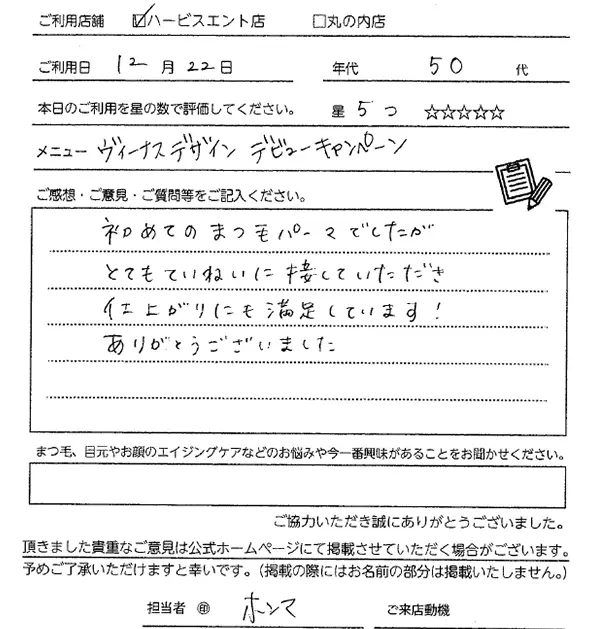 ご利用店舗 ☑ハービスエント店 □丸の内店
ご利用日 12月22日 年代 50代
本日のご利用を星の数で評価してください。 星 5つ ☆☆☆☆☆
メニュー ヴィーナスデザイン デビューキャンペーン
ご感想・ご意見・ご質問等をご記入ください。
初めてのまつ毛パーマでしたが
とてもていねいに接していただき
仕上がりにも満足しています!
ありがとうございました
まつ毛、目元やお顔のエイジングケアなどのお悩みや今一番興味があることをお聞かせください。
ご協力いただき誠にありがとうございました。
頂きました貴重なご意見は公式ホームページにて掲載させていただく場合がございます。
予めご了承いただけますと幸いです。(掲載の際にはお名前の部分は掲載いたしません。)
担当者 ㊞ ホンマ ご来店動機